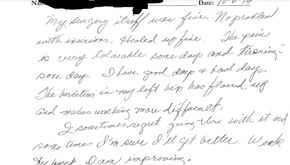 Na
Date 10-6-14
My surgery itself was fine. No problem
with incisions. Healed up fine. The pain
is very tolerable some days and
some days. I have good days & bad days.
The bursitis in my left hip has flared up
and makes walking more difficult.
I sometimes regret going thru with it and
some times I'm sure I'll get better. Week
I am improving.